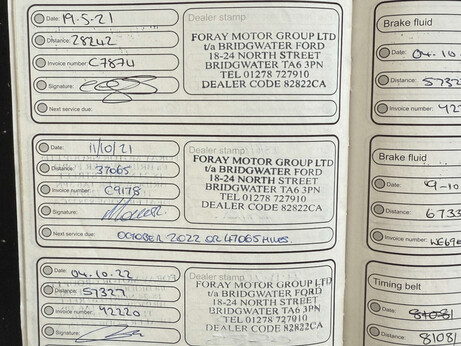 Date: 19.5.21
Distance: 28242
Invoice number: C7874
Signature:
Next service due:
Dealer stamp
FORAY MOTOR GROUP LTD
t/a BRIDGWATER FORD
18-24 NORTH STREET
BRIDGWATER TA6 3PN
TEL 01278 727910
DEALER CODE 82822CA
Date: 11/10/21
Distance: 37065
Invoice number: C9178
Signature:
Next service due: OCTOBER 2022 OR 47065 MILES
Dealer stamp
FORAY MOTOR GROUP LTD
t/a BRIDGWATER FORD
18-24 NORTH STREET
BRIDGWATER TA6 3PN
TEL 01278 727910
DEALER CODE 82822CA
Date: 04.10.22
Distance: 57327
Invoice number: 42220
Signature:
Dealer stamp
FORAY MOTOR GROUP LTD
t/a BRIDGWATER FORD
18-24 NORTH STREET
BRIDGWATER TA6 3PN
TEL 01278 727910
DEALER CODE 82822CA
Brake fluid
Date: 04.10.
Distance: 5732
Invoice number: 422
Brake fluid
Date: 9-10
Distance: 6733
Invoice number:
Timing belt
Date:
Distance: 8108/